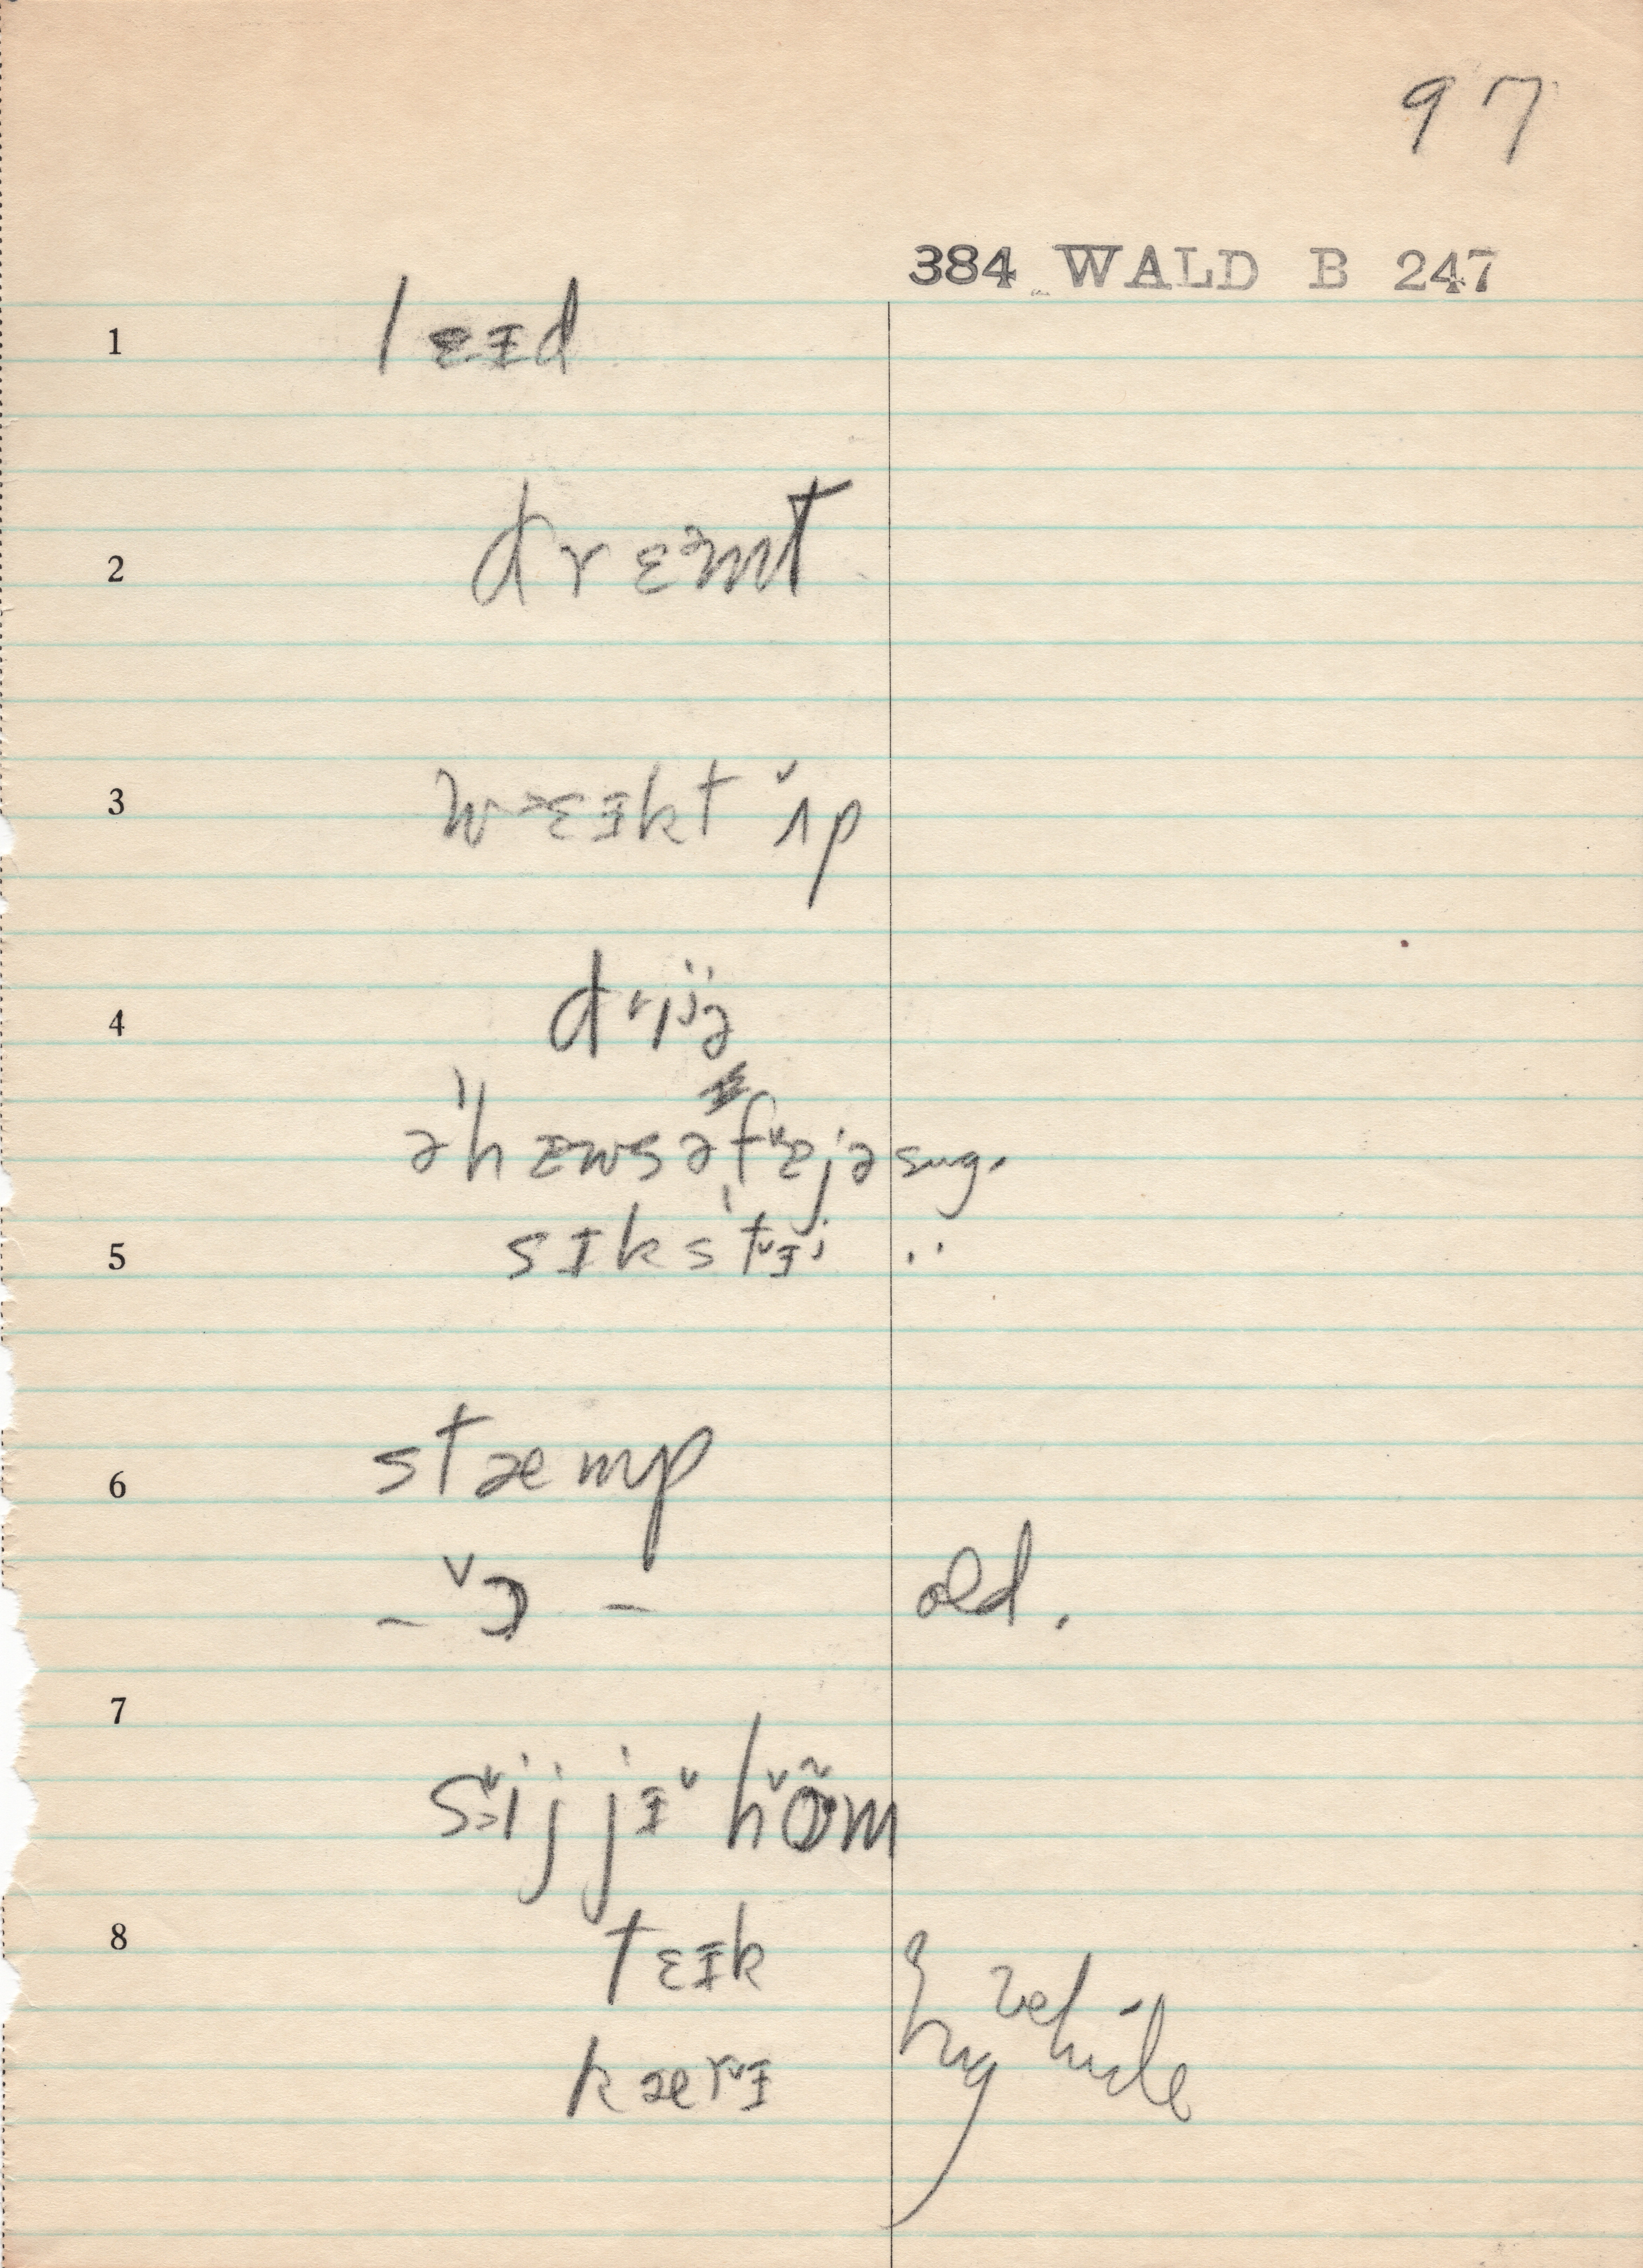 97
384 WALD B 247
1 lɛɪd
2 drɛᵊmt
3 wᵊɛɪkt ˇʌp
4 drijə
ə'hɛwsəfˇɛjə sug.
5 sɪks'tˇɪi ..
6 stæmp
– ˇɔ – old.
7
sˇəij jɪˇ hˇõm
8 tɛɪk
kærˇɪ by vehicle